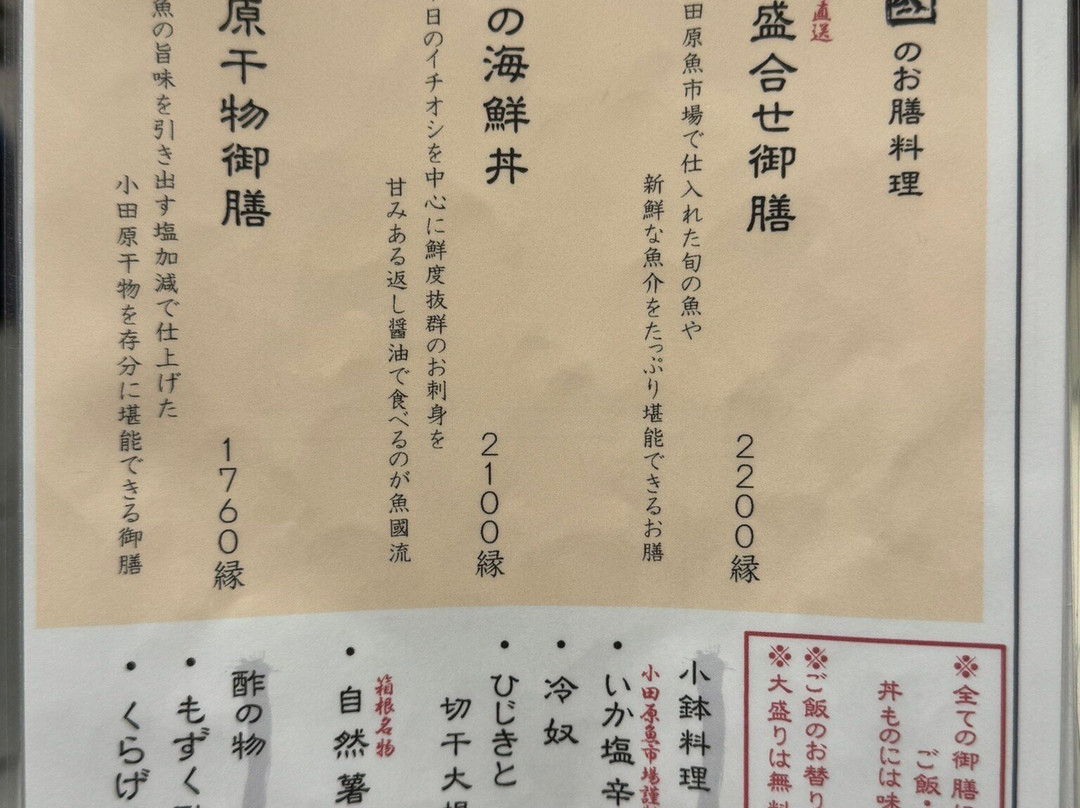 國のお膳料理
直送
盛合せ御膳
田原魚市場で仕入れた旬の魚や
新鮮な魚介をたっぷり堪能できるお膳
2200縁
の海鮮丼
日のイチオシを中心に鮮度抜群のお刺身を
甘みある返し醤油で食べるのが魚國流
2100縁
原干物御膳
魚の旨味を引き出す塩加減で仕上げた
小田原干物を存分に堪能できる御膳
1760縁
※全ての御膳
ご飯
丼ものには味
※ご飯のお替り
※大盛りは無料
小鉢料理
小田原魚市場謹
・いか塩辛
・冷奴
・ひじきと
切干大根
箱根名物
・自然薯
酢の物
・もずく酢
・くらげ